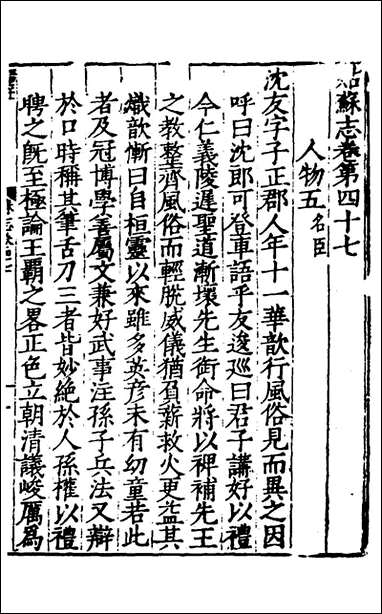 姑蘇志卷第四十七
人物五名臣
沈友字子正郡人年十一華歆行風俗見而異之因
呼曰沈郎可登車語乎友逡巡曰君子講好以禮
今仁義陵遲聖道漸壞先生銜命將以裨補先王
之教整齊風俗而輕脫威儀猶負薪救火更益其
熾歆慚曰自桓靈以來雖多英彦未有幼童若此
者及冠博學善屬文兼好武事注孫子兵法又辯
於口時稱其筆舌刀三者皆妙絶於人孫權以禮
聘之既至極論王霸之畧正色立朝清議峻厲爲